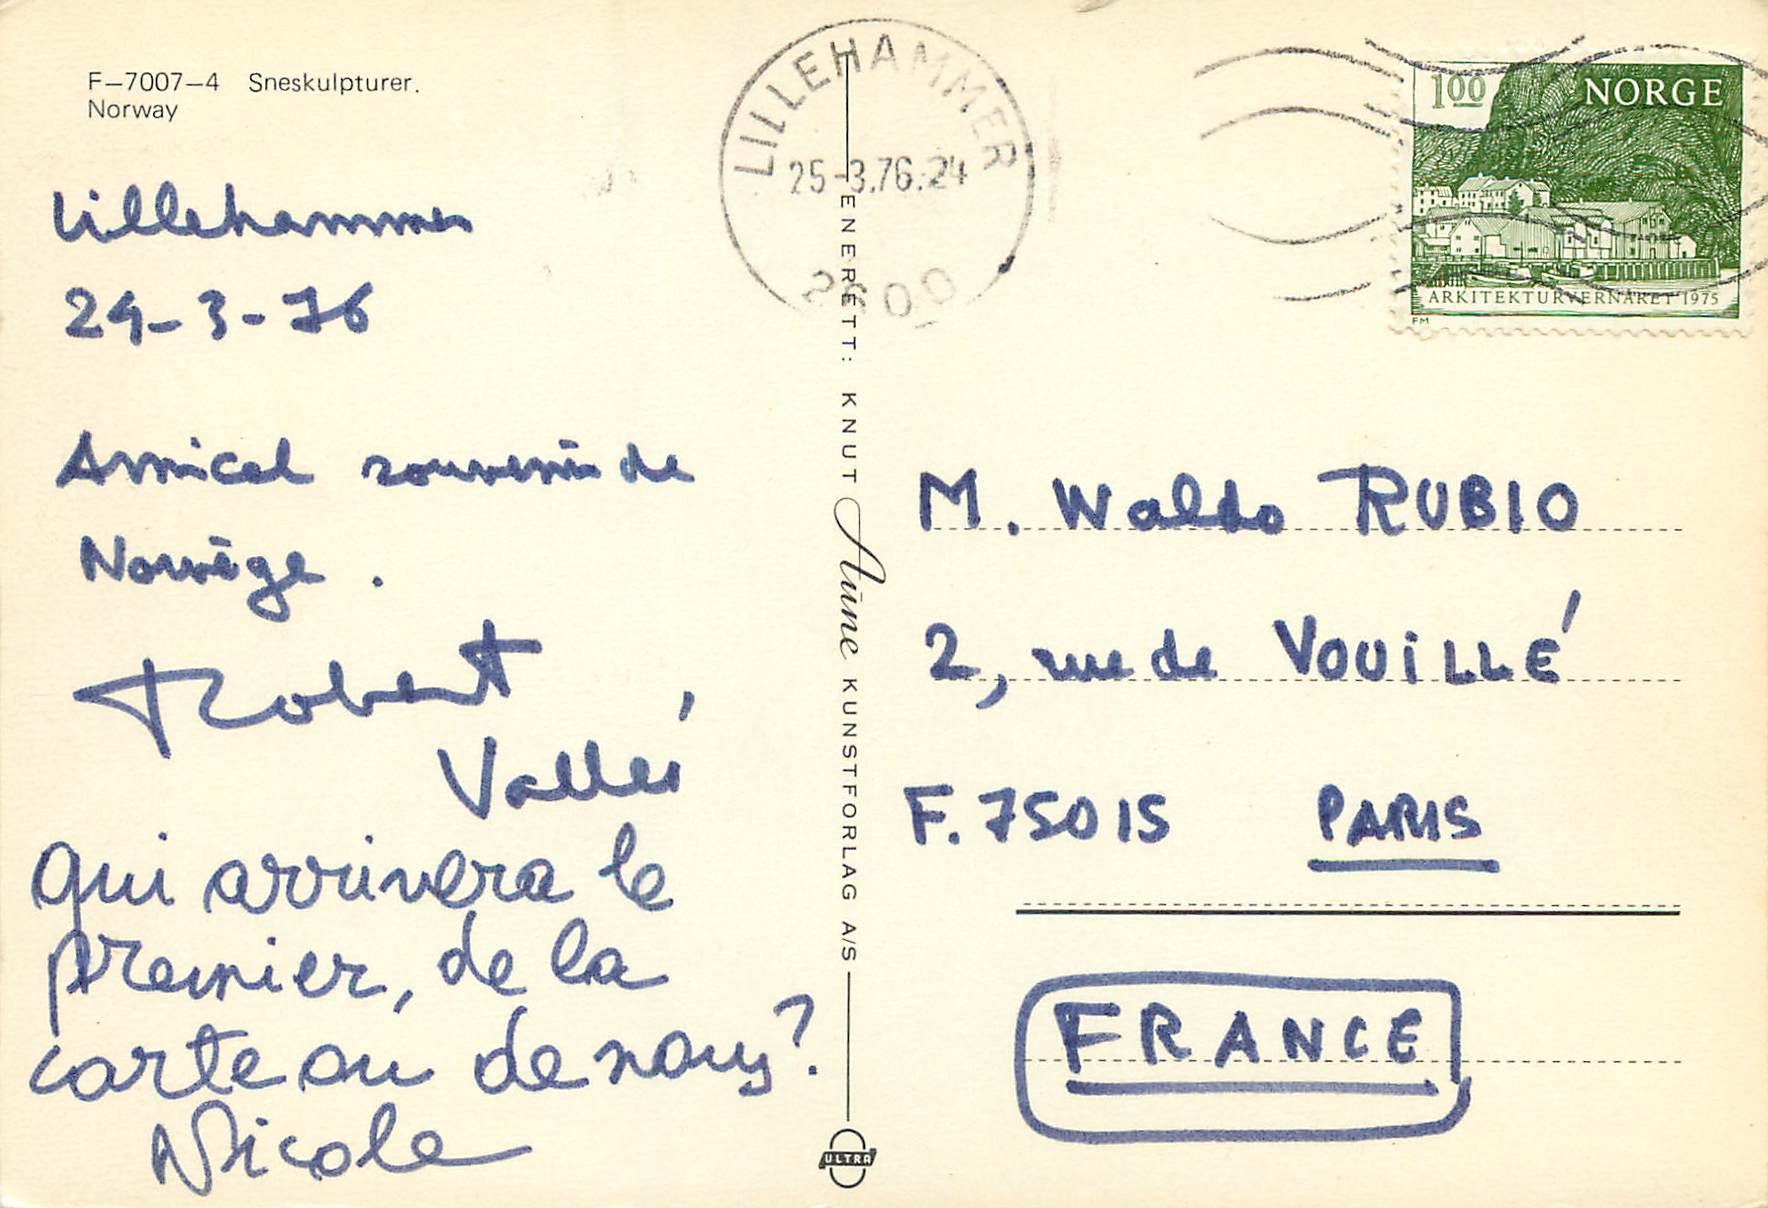 F–7007–4 Sneskulpturer.
Norway
Lillehammer
24-3-76
Amical souvenir de
Norvège.
Robert
Vallée
qui arrivera le
premier, de la
carte ou de nous?
Nicole
LILLEHAMMER
25-3.76.24
2600
ENERETT: KNUT Aune KUNSTFORLAG A/S
ULTRA
1.00 NORGE
ARKITEKTURVERNÅRET 1975
FM
M. Waldo RUBIO
2, rue de VOUILLÉ
F. 75015 PARIS
FRANCE